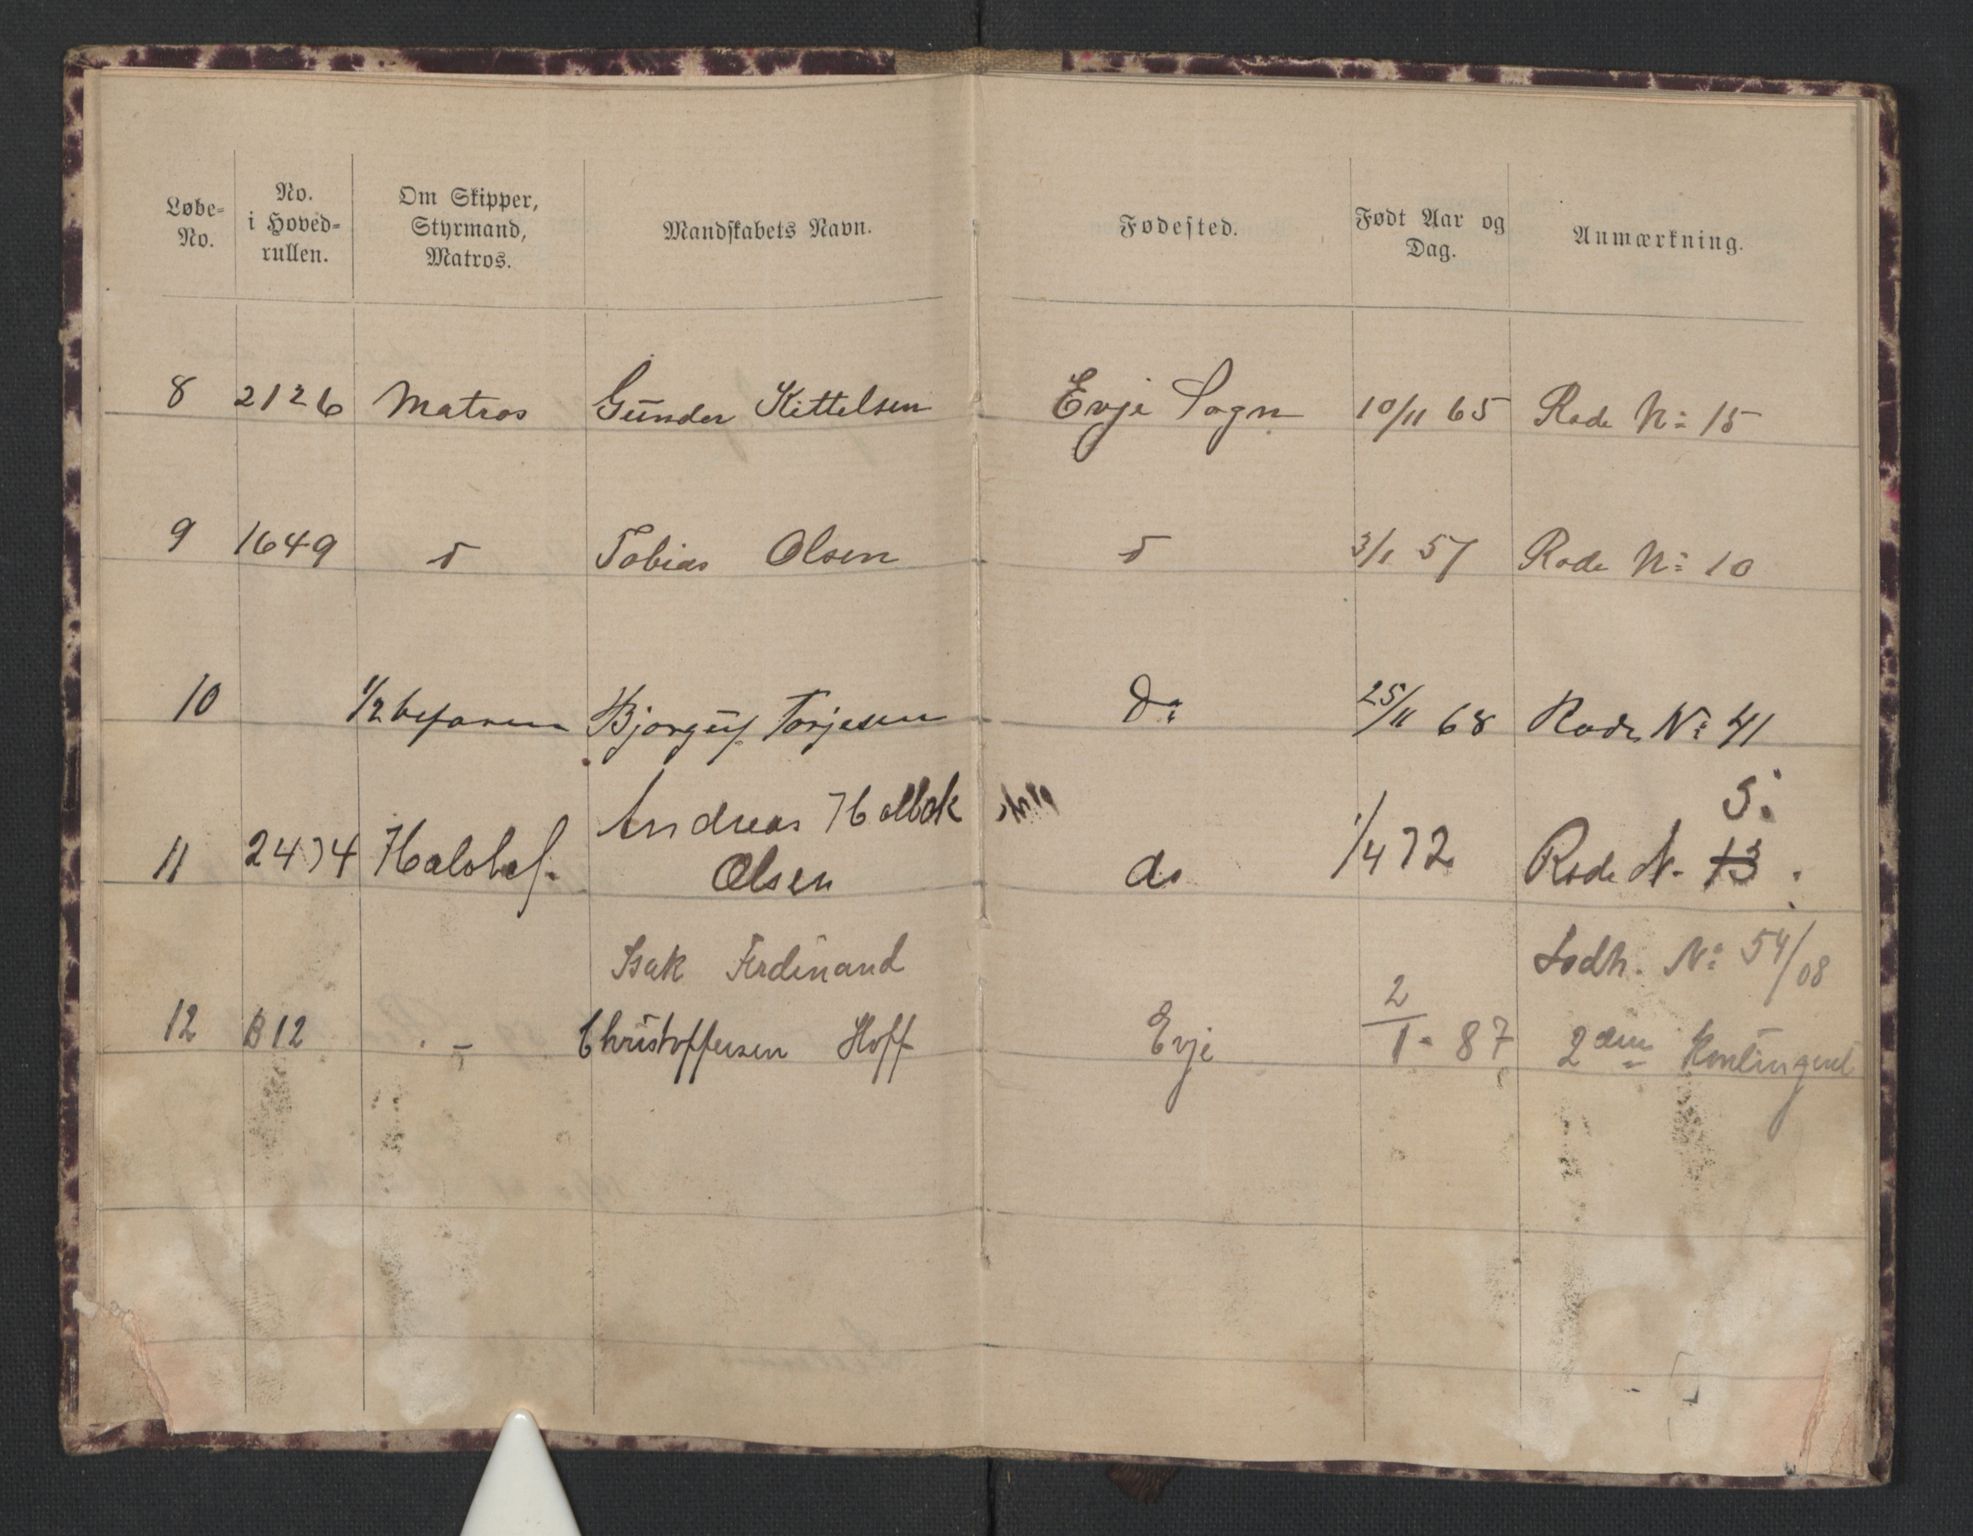 Løbe-No. No. i Hoved-rullen. Om Skipper, Styrmand, Matros. Mandskabets Navn. Fødested. Født Aar og Dag. Anmærkning.
8 2126 Matros Gunder Kittelsen Evje Sogn 10/11 65 Rode No 15
9 1649 do Tobias Olsen do 3/1 57 Rode No 10
10 1/2 befaren Bjorguf Torjesen Do 25/11 68 Rode No 41
Andreas Holbæk 5.
11 2474 Halvbef. Olsen do 1/4 72 Rode N. 13.
Isak Ferdinand Indh. No 54/08
12 B12 - Christoffersen Hoff Evje 2/1-87 2den Kontingent